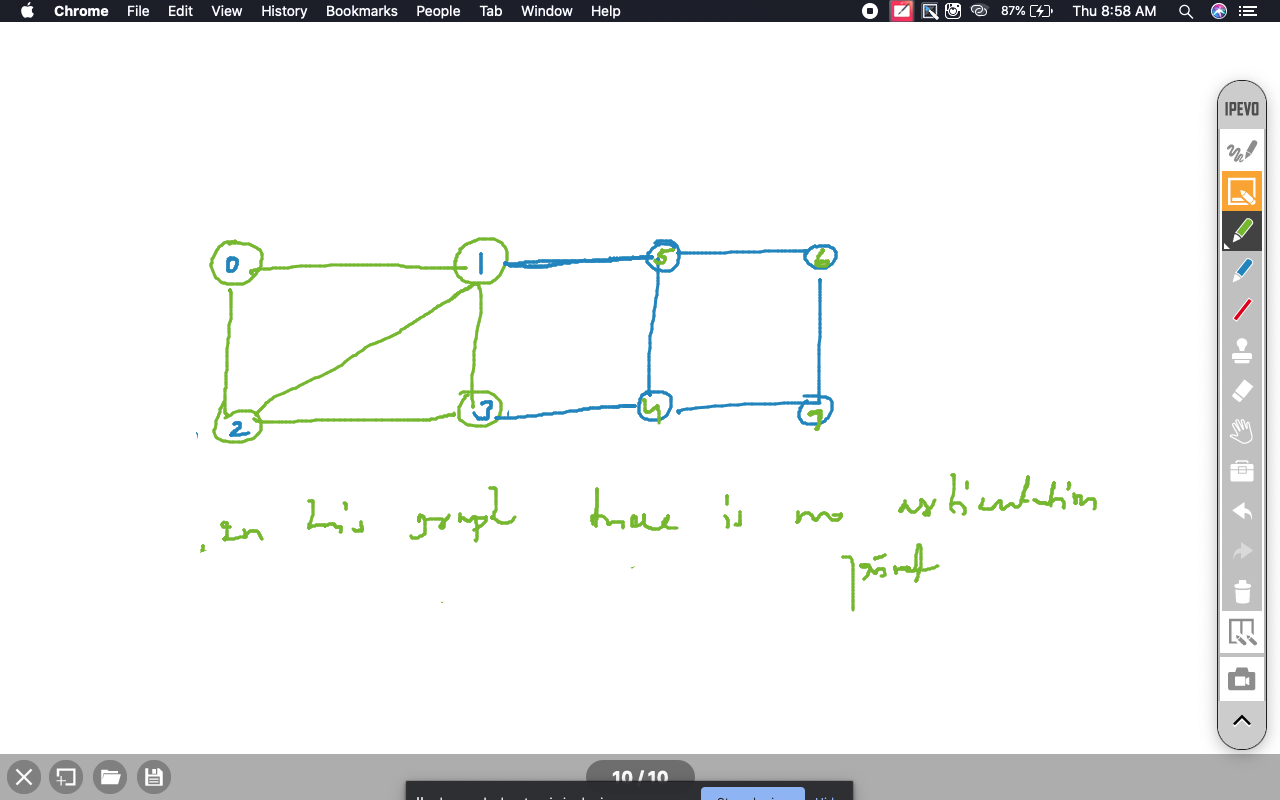 Chrome File Edit View History Bookmarks People Tab Window Help 87% Thu 8:58 AM
IPEVO
0 1 5 6
2 3 4 7
In this graph there is no articulation
point
10 / 10